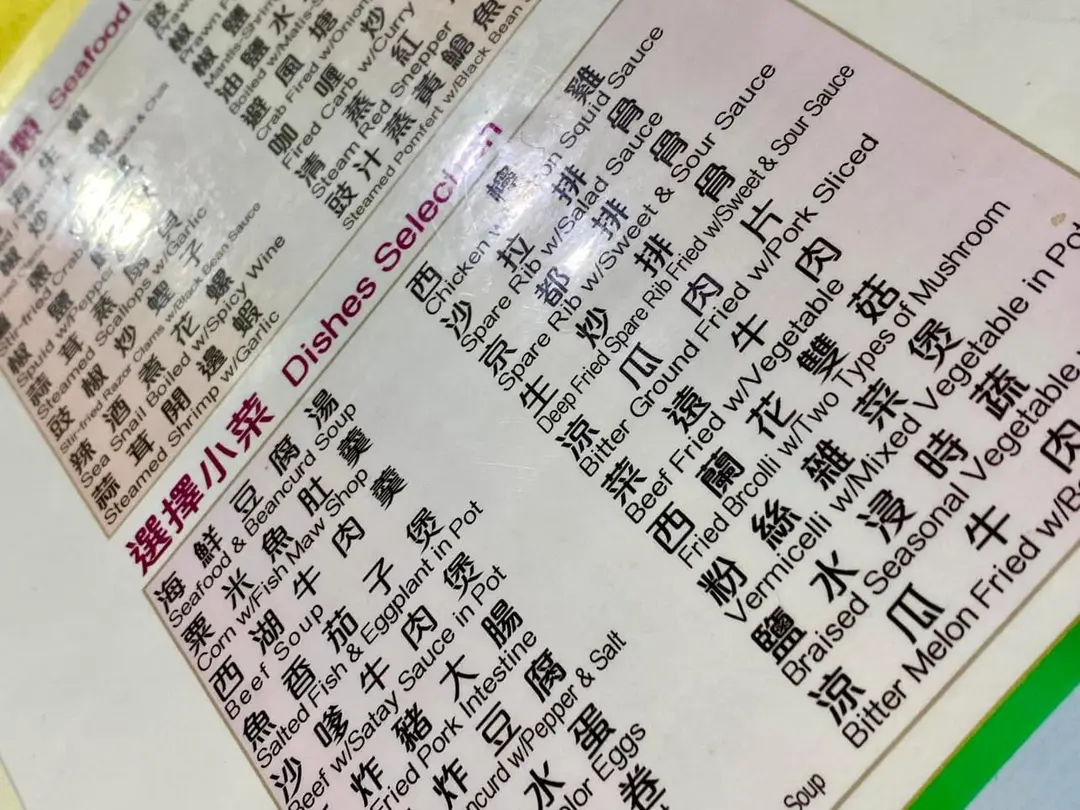 Seafood
海
生
蝦
炒
椒
Stir-fried Crab
椒 鹽
Squid w/Pepper &
蒜 茸 蒸 扇 貝
Steamed Scallops w/Garlic
豉 椒 炒 蟶 子
Stir-fried Razor Clams w/Black Bean Sauce
辣 酒 煮 花 螺
Sea Snail Boiled w/Spicy Wine
蒜 茸 開 邊 蝦
Steamed Shrimp w/Garlic
豉
椒
椒 鹽
Mantis Shrim
油 鹽 水
Boiled w/Matis S
避 風 塘 炒
Crab Fired w/Onion
咖 喱 炒
Fired Carb w/Curry
清 蒸 紅
Steam Red Snepper
豉 汁 蒸 黃 鱠 魚
Steamed Pomfert w/Black Bean S
選擇小菜 Dishes Selection
海 鮮 豆 腐 湯
Seafood & Beancurd Soup
粟 米 魚 肚 羹
Corn w/Fish Maw Shop
西 湖 牛 肉 羹
Beef Soup
魚 香 茄 子 煲
Salted Fish & Eggplant in Pot
沙 嗲 牛 肉 煲
Beef w/Satay Sauce in Pot
炸 豬 大 腸
Fried Pork Intestine
炸 豆 腐
ncurd w/Pepper & Salt
水 蛋
olor Eggs
卷
Soup
西 檸 雞
Chicken w on Squid Sauce
沙 拉 排 骨
Spare Rib w/Salad Sauce
京 都 排 骨
Spare Rib w/Sweet & Sour Sauce
生 炒 排 骨
Deep Fried Spare Rib Fried w/Sweet & Sour Sauce
涼 瓜 肉 片
Bitter Ground Fried w/Pork Sliced
菜 遠 牛 肉
Beef Fried w/Vegetable
西 蘭 花 雙 菇
Fried Brcolli w/Two Types of Mushroom
粉 絲 雜 菜 煲
Vermicelli w/Mixed Vegetable in Pot
鹽 水 浸 時 蔬
Braised Seasonal Vegetable
涼 瓜 牛 肉
Bitter Melon Fried w/Be